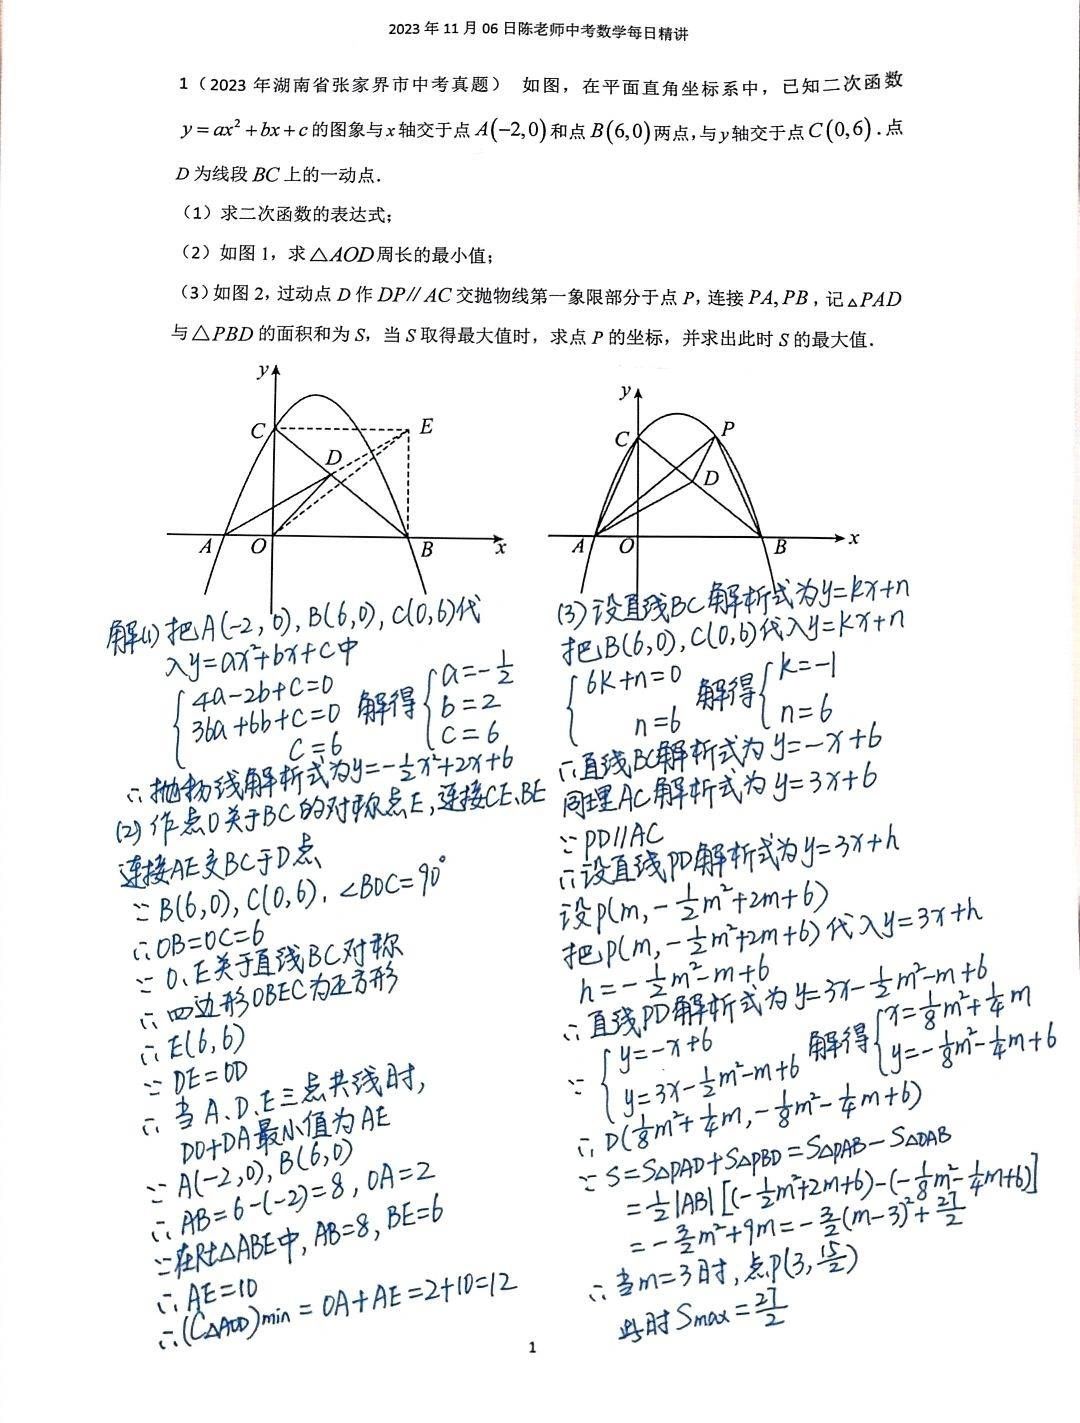 2023 年 11 月 06 日陈老师中考数学每日精讲
1（2023 年湖南省张家界市中考真题） 如图，在平面直角坐标系中，已知二次函数
y = ax² + bx + c 的图象与 x 轴交于点 A(−2,0) 和点 B(6,0) 两点，与 y 轴交于点 C(0,6)．点
D 为线段 BC 上的一动点．
（1）求二次函数的表达式；
（2）如图 1，求 △AOD 周长的最小值；
（3）如图 2，过动点 D 作 DP∥AC 交抛物线第一象限部分于点 P，连接 PA, PB，记 △PAD
与 △PBD 的面积和为 S，当 S 取得最大值时，求点 P 的坐标，并求出此时 S 的最大值．
y
C
E
D
A
O
B
x
y
C
P
D
A
O
B
x
解(1) 把A(-2,0), B(6,0), C(0,6)代
入y=ax²+bx+c中
{4a-2b+c=0
36a+6b+c=0
c=6
解得 {a=-1/2
b=2
c=6
∴抛物线解析式为y=-1/2x²+2x+6
(2) 作点O关于BC的对称点E,连接CE、BE
连接AE交BC于D点
∵B(6,0), C(0,6), ∠BOC=90°
∴OB=OC=6
∵O、E关于直线BC对称
∴四边形OBEC为正方形
∴E(6,6)
∵DE=OD
∴当A、D、E三点共线时,
DO+DA最小值为AE
∵A(-2,0), B(6,0)
∴AB=6-(-2)=8, OA=2
∵在Rt△ABE中, AB=8, BE=6
∴AE=10
∴(C△AOD)min=OA+AE=2+10=12
(3) 设直线BC解析式为y=kx+n
把B(6,0), C(0,6)代入y=kx+n
{6k+n=0
n=6
解得 {k=-1
n=6
∴直线BC解析式为y=-x+6
同理AC解析式为y=3x+6
∵PD∥AC
∴设直线PD解析式为y=3x+h
设P(m,-1/2m²+2m+6)
把P(m,-1/2m²+2m+6)代入y=3x+h
h=-1/2m²-m+6
∴直线PD解析式为y=3x-1/2m²-m+6
∵{y=-x+6
y=3x-1/2m²-m+6
解得 {x=1/8m²+1/4m
y=-1/8m²-1/4m+6
∴D(1/8m²+1/4m,-1/8m²-1/4m+6)
∵S=S△PAD+S△PBD=S△PAB-S△DAB
=1/2|AB|[(-1/2m²+2m+6)-(-1/8m²-1/4m+6)]
=-3/2m²+9m=-3/2(m-3)²+27/2
∴当m=3时,点P(3,15/2)
此时Smax=27/2
1